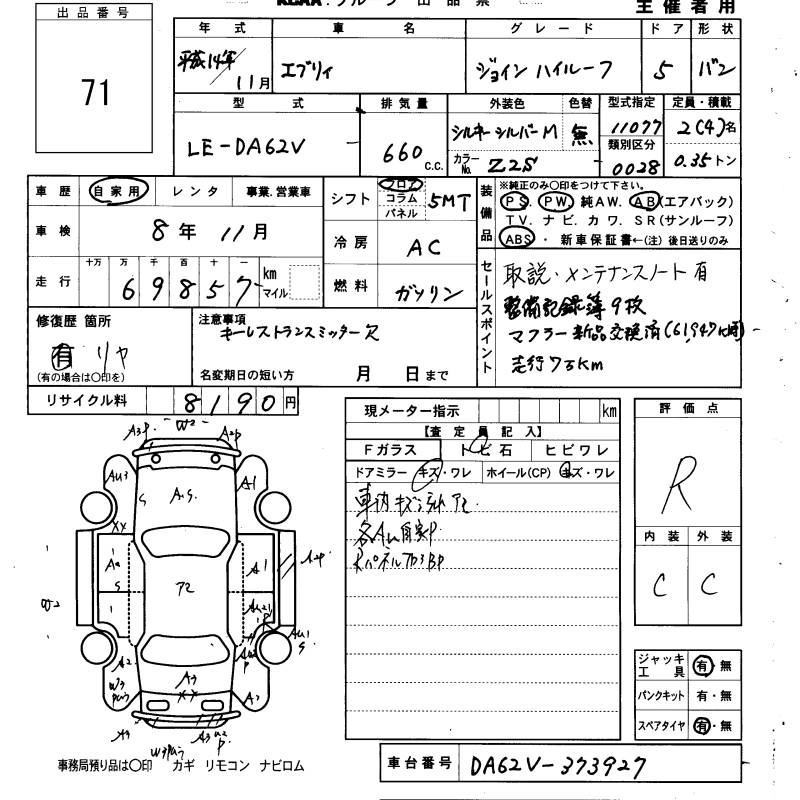 主催者用
出品番号
71
年式 車名 グレード ドア 形状
平成14年 11月 エブリイ ジョイン ハイルーフ 5 バン
型式 排気量 外装色 色替 型式指定 定員・積載
LE-DA62V 660 c.c. シルキーシルバーM 無 11077 2(4)名
カラーNo. Z2S 類別区分 0028 0.35トン
車歴 自家用 レンタ 事業.営業車
シフト フロア コラム パネル 5MT
装備品 ※純正のみ○印をつけて下さい。
PS. PW. 純AW. AB(エアバック)
TV. ナビ. カワ. SR(サンルーフ)
ABS ・ 新車保証書←(注) 後日送りのみ
車検 8年 11月
冷房 AC
走行 十万 万 千 百 十 一
69857 km マイル
燃料 ガソリン
セールスポイント
取説・メンテナンスノート有
整備記録簿9枚
マフラー新品交換済(61,947k時)
走行7万km
修復歴 箇所
有 リヤ
(有の場合は○印を)
注意事項
キーレストランスミッター欠
名変期日の短い方 月 日まで
リサイクル料 8190円
現メーター指示 km
【査定員記入】
Fガラス トビ石 ヒビワレ
ドアミラー キズ・ワレ ホイール(CP) キズ・ワレ
評価点
R
内装 外装
C C
ジャッキ工具 有・無
パンクキット 有・無
スペアタイヤ 有・無
A3P W2 A2P
AU3 A1
A.S.
XX
A1
A2P
W2
A2
A3
XX
事務局預り品は○印 カギ リモコン ナビロム
車台番号 DA62V-373927